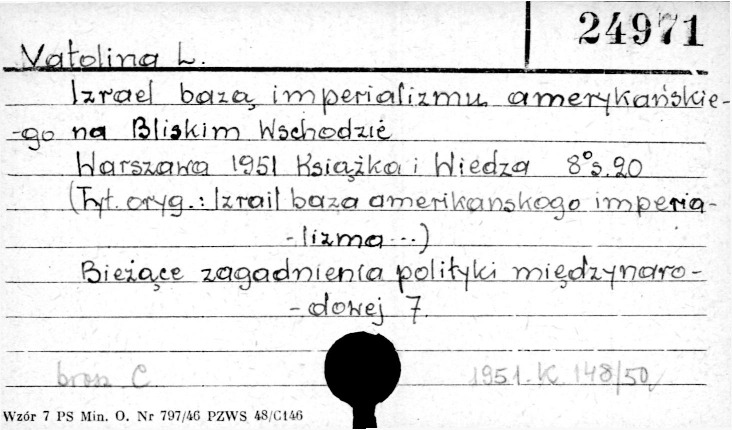 24971
Vatolina L.
Izrael bazą imperializmu amerykańskie-
-go na Bliskim Wschodzie
Warszawa 1951 Książka i Wiedza 8° s. 20
(Tyt. oryg.: Izrail baza amerikanskogo imperia-
-lizma...)
Bieżące zagadnienia polityki międzynaro-
-dowej 7.
brosz. C 1951. K. 148/50
Wzór 7 PS Min. O. Nr 797/46 PZWS 48/C146